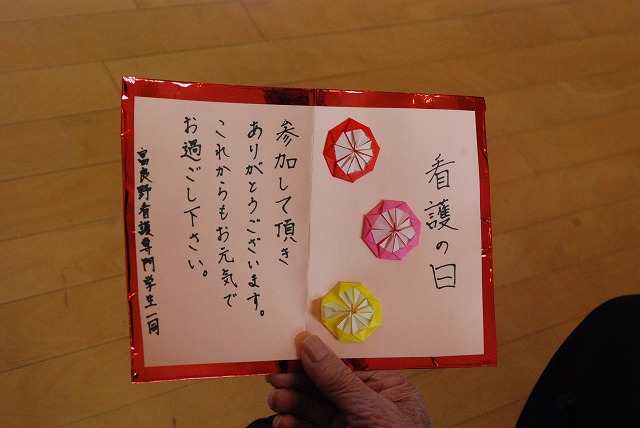 看護の日
参加して頂き
ありがとうございます。
これからもお元気で
お過ごし下さい。
富良野看護専門学生一同